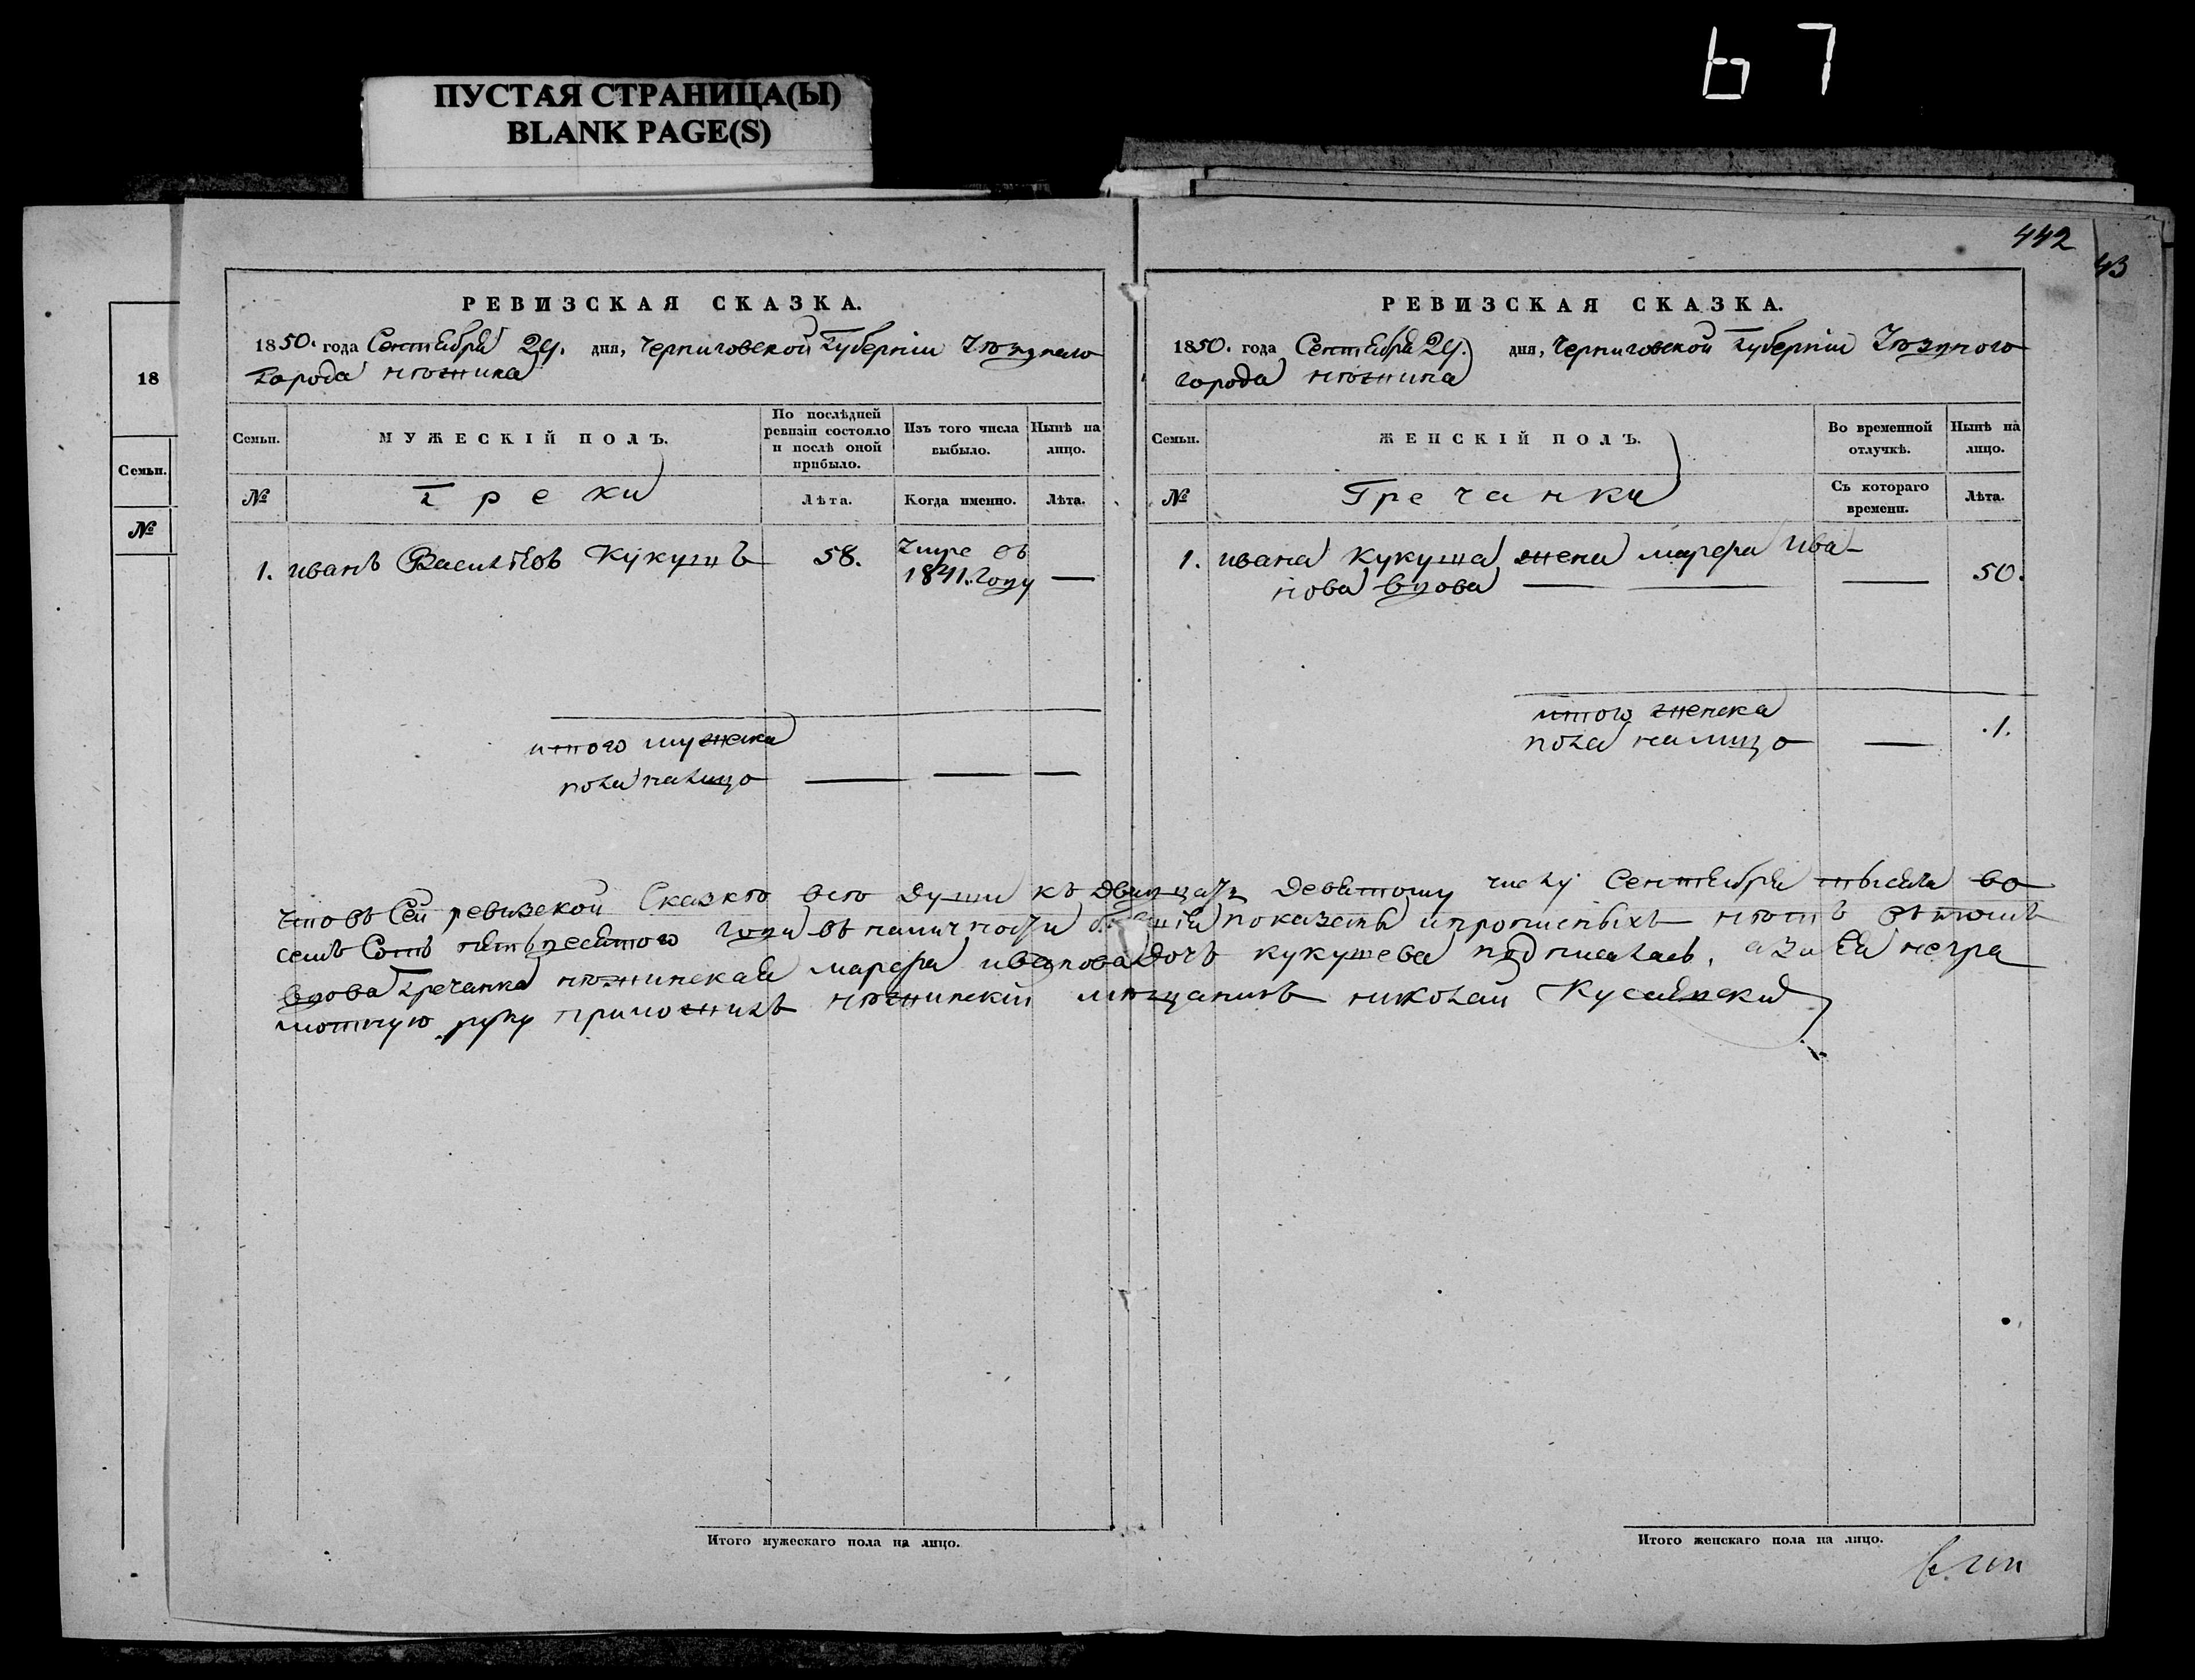 67
ПУСТАЯ СТРАНИЦА(Ы)
BLANK PAGE(S)
442
43
18
Семьи.
№
РЕВИЗСКАЯ СКАЗКА.
1850. года Сентября 29. дня, Черниговской Губерніи Уѣзднаго
Города нѣжина
Семьи.
МУЖЕСКІЙ ПОЛЪ.
По послѣдней ревизіи состояло и послѣ оной прибыло.
Изъ того числа выбыло.
Нынѣ на лицо.
№
Греки
Лѣта.
Когда именно.
Лѣта.
1. иванъ Васильевъ Кукушъ 58. Умре въ
1841. Году —
итого мужеска
пола налицо — — —
РЕВИЗСКАЯ СКАЗКА.
1850. года Сентября 29. дня, Черниговской Губерніи Уѣзднаго
города нѣжина
Семьи.
ЖЕНСКІЙ ПОЛЪ.
Во временной отлучкѣ.
Нынѣ на лицо.
№
Гречанки
Съ котораго времени.
Лѣта.
1. ивана Кукуша жена марфа Ива-
нова вдова — — — 50.
итого женска
пола налицо — .1.
что въ Сей ревизской Сказкѣ всѣ души къ двадцать девятому числу Сентября тысяча во
семъ Сотъ пятьдесятого года въ наличности бывшія показаны и прописныхъ нѣтъ въ томъ
вдова Гречанка нѣжинская марфа иванова дочь кукушева подписалась, а за Ея негра
мотную руку приложилъ нѣжинскій мѣщанинъ николай
Итого мужескаго пола на лицо.
Итого женскаго пола на лицо.